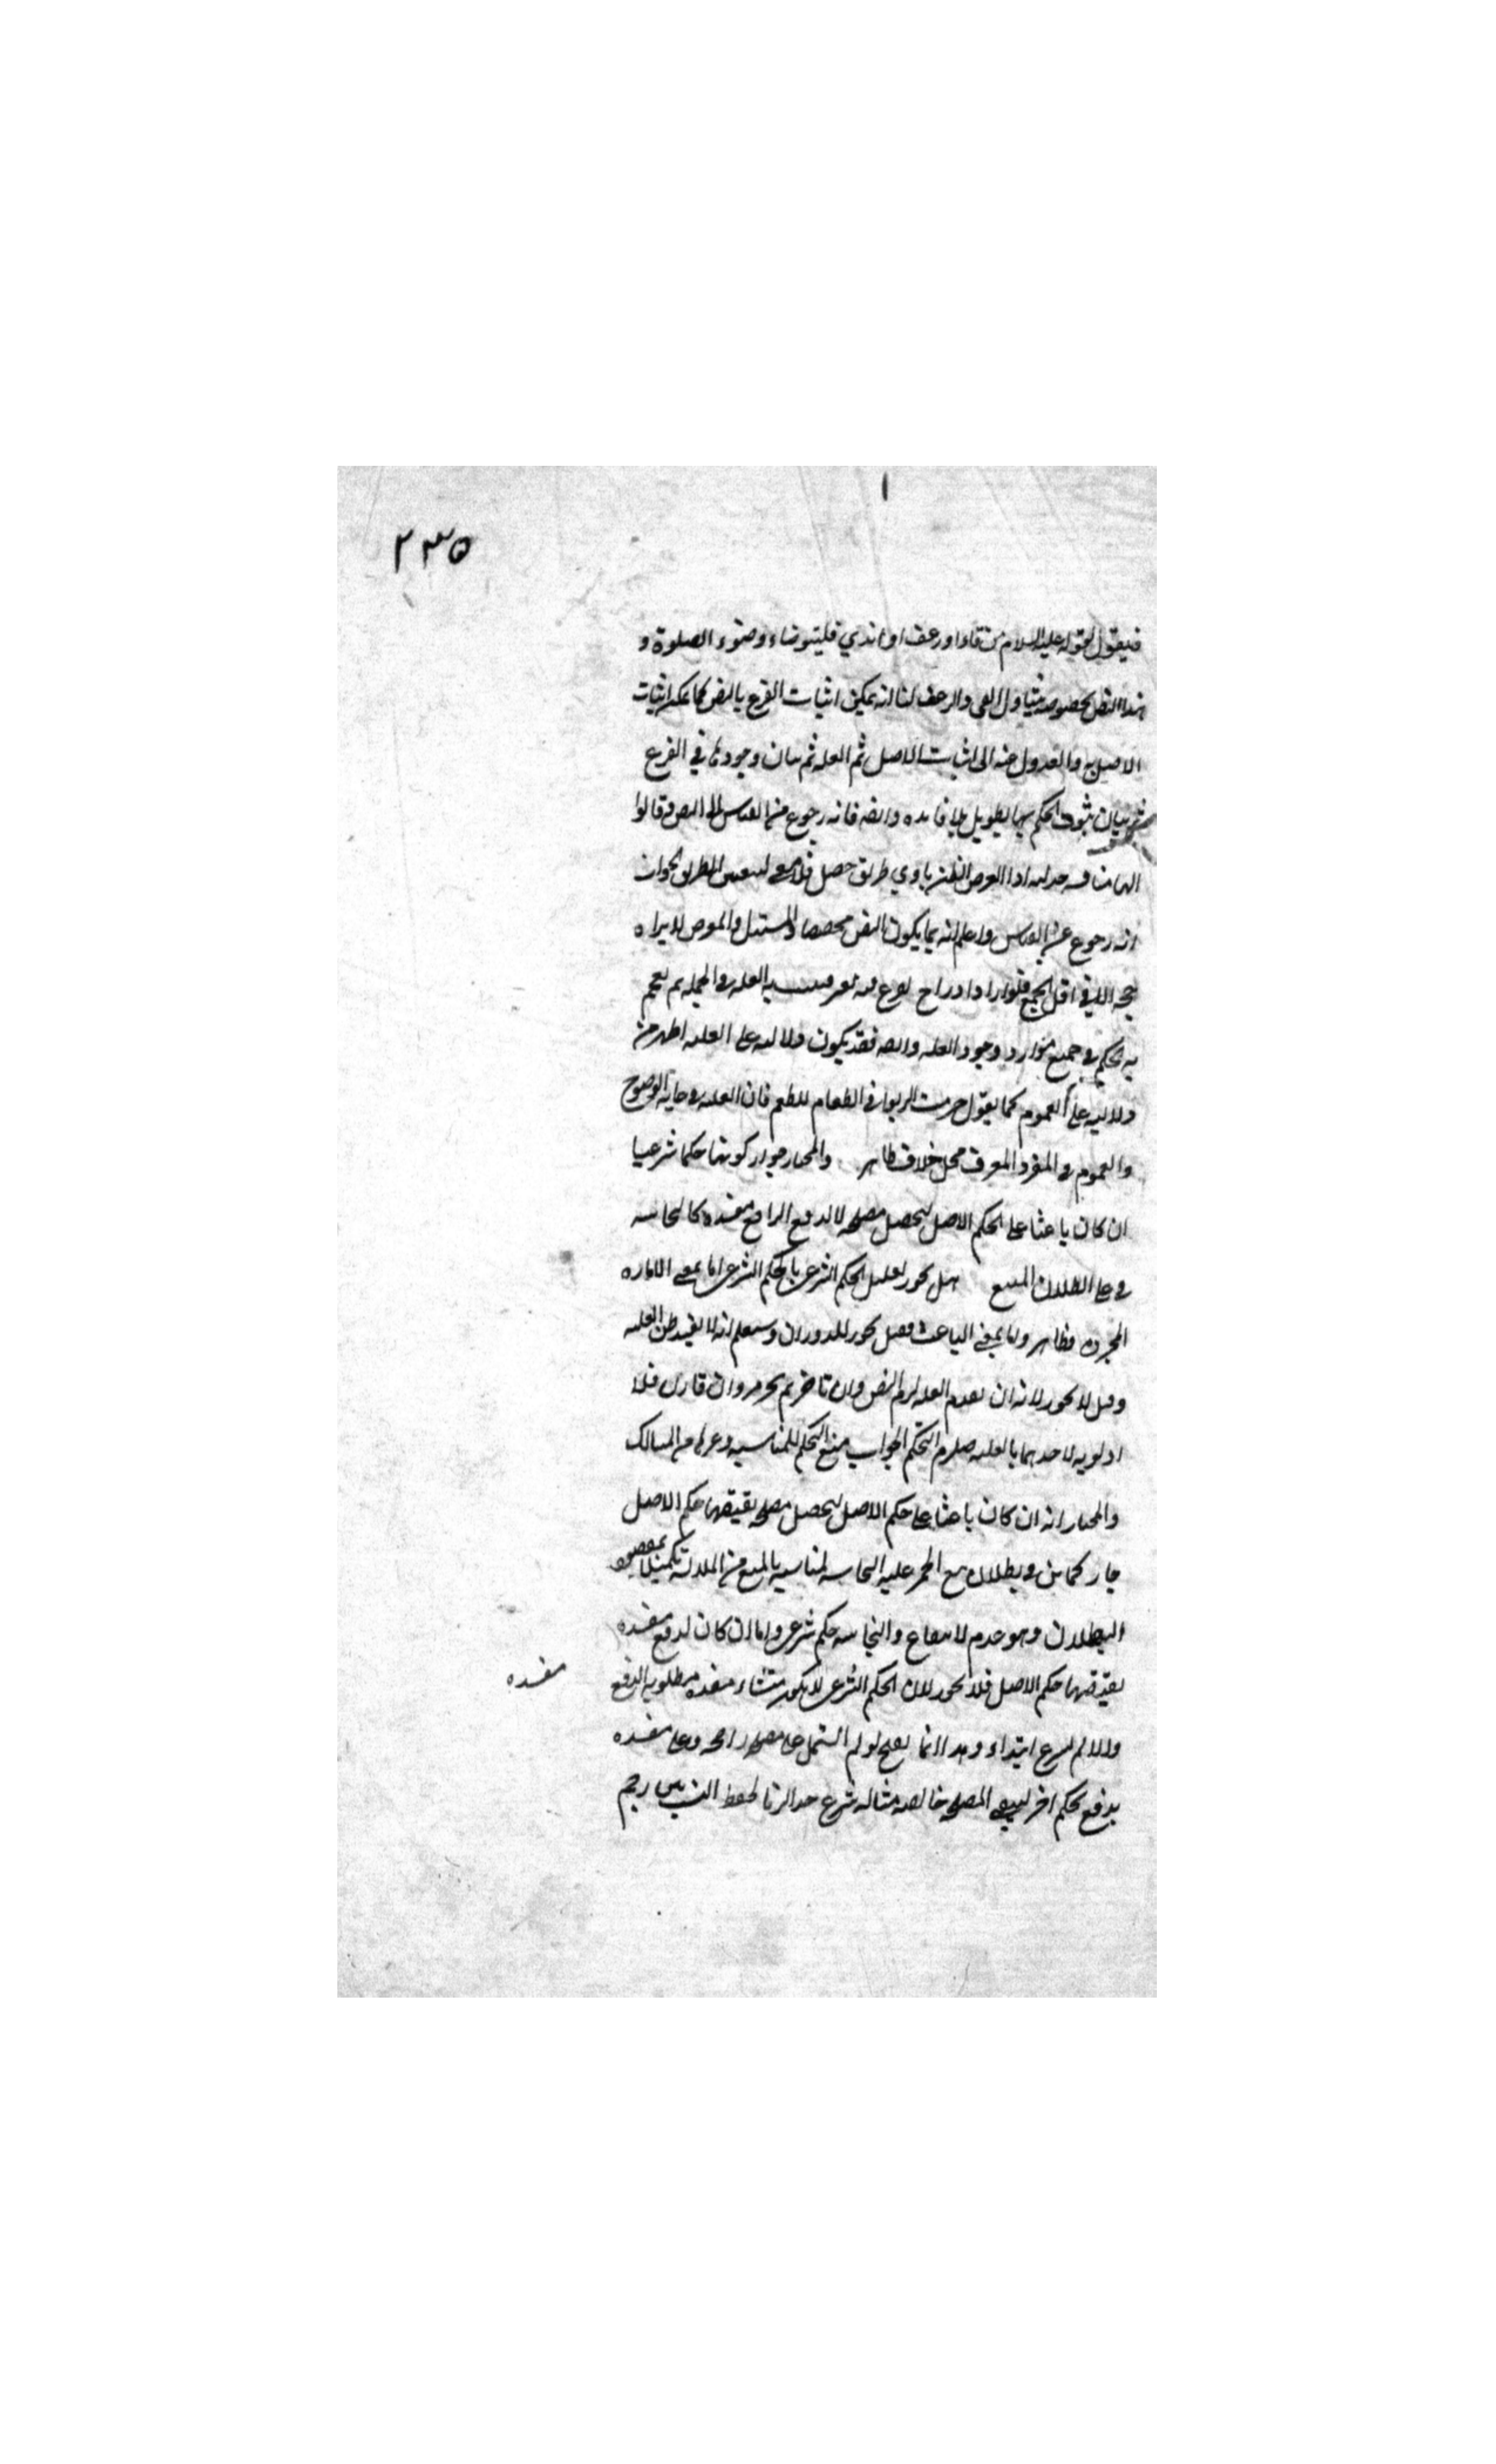 ٢٣٥
فيقول لقوله عليه السلام من قاء او رعف او امذي فليتوضاء وضوء الصلوة و
هذا النص بخصوصه يتناول القي والرعف لنا انه يمكن اثبات الفرع بالنص كما يمكن اثبات
الاصل به والعدول عنه الى اثبات الاصل ثم العله ثم بيان وجودها في الفرع
ثم بيان ثبوت الحكم بها تطويل بلا فايده وايضه فانه رجوع من القياس الى النص وقالوا
اذا الغرض الظن باي طريق حصل فلا معنى لتعيين الطريق الجواب
انه رجوع عن القياس واعلم انه ربما يكون النص مخصصا والمستدل والمعترض لا يراه
حجه الا في اقل الجمع فلو اراد ادراج الفرع فيه تعسر فيثبت به العله في الجمله ثم يعمم
به الحكم في جميع موارد وجود العله وايضه فقد يكون دلالته على العليه اظهر من
دلالته على العموم كما يقول حرمت الربوا في الطعام للطعم فان العليه في غايه الوضوح
والعموم في المفرد المعرف محل خلاف ظاهر والمختار جواز كونها حكما شرعيا
ان كان باعثا على الحكم الاصل لتحصيل مصلحه لا لدفع مفسده كالنجاسه
في عله بطلان البيع هل يجوز تعليل الحكم الشرعي بالحكم الشرعي اما بمعنى الاماره
المجرده فظاهر واما بمعنى الباعث فقيل يجوز للدوران وستعلم انه لا يفيد ظن العليه
وقيل لا يجوز لانه ان تقدم العله لزم النقض وان تاخر لم يجز وان قارن فلا
اولويه لاحدهما بالعليه فيلزم التحكم الجواب منع التحكم للمناسبه وغيرها من المسالك
والمختار انه ان كان باعثا على حكم الاصل لتحصيل مصلحه يقتضيها حكم الاصل
جاز كما بين في بطلان بيع الخمر عليه النجاسه لمناسبه بالمنع من الملابسه تكميلا لمقصود
البطلان وهو عدم الانتفاع والنجاسه حكم شرعي واما ان كان لدفع مفسده
يقتضيها حكم الاصل فلا يجوز لان الحكم الشرعي لا يكون منشاء مفسده مطلوب الدفع
مفسده
والا لم يشرع ابتداء وهذا انما يصح لو لم يشتمل على مصلحه راجحه وعلى مفسده
يدفع بحكم اخر ليبقى المصلحه خالصه مثاله شرع حد الزنا لحفظ النسب رجم